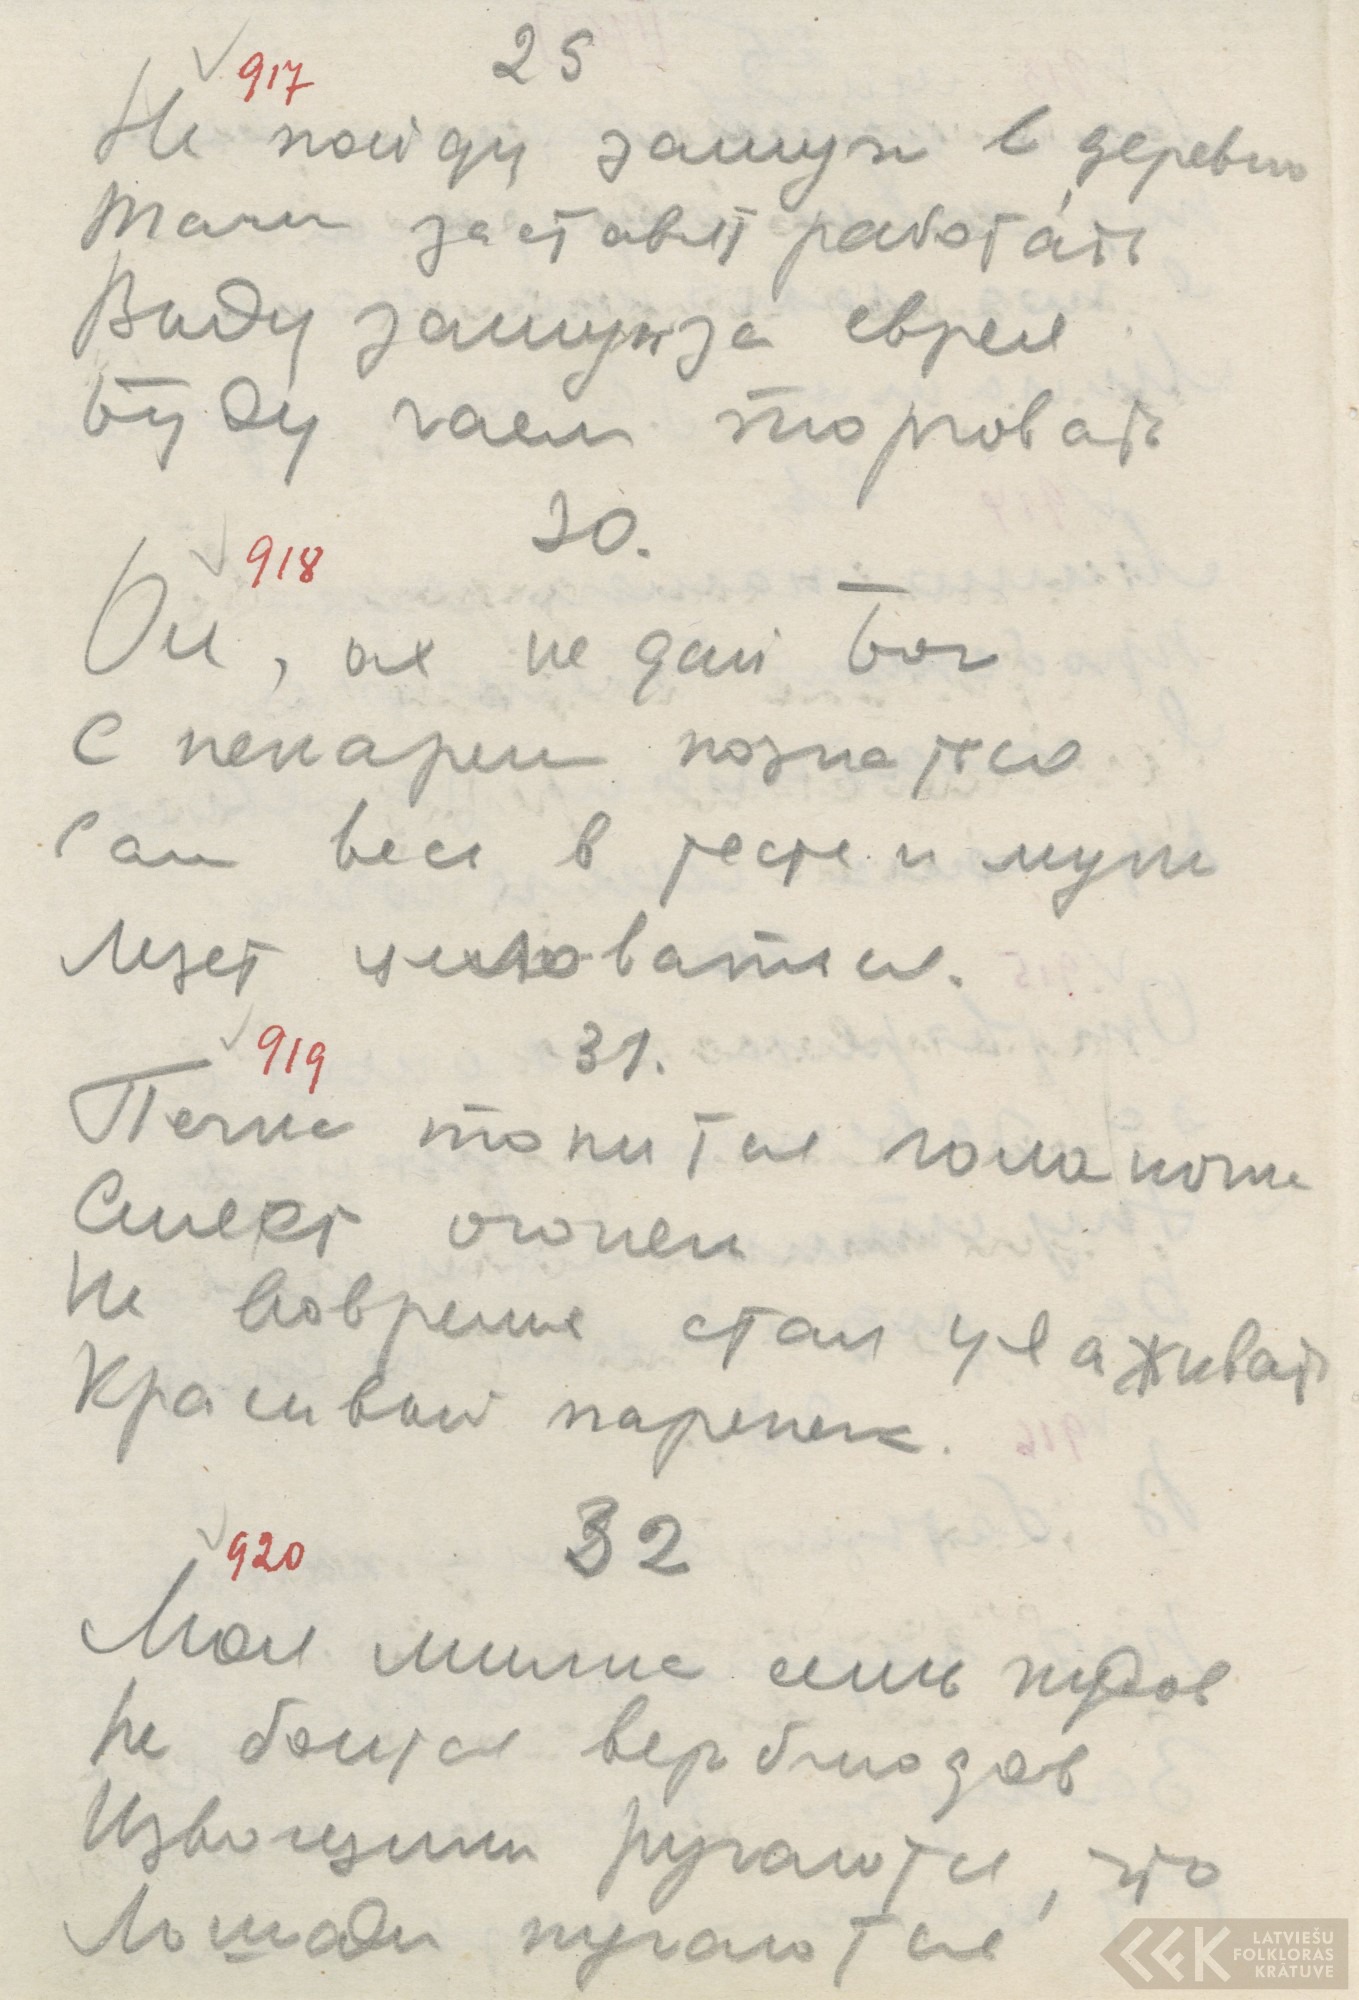 917 25
Не пойду замуж в деревню
Тамъ заставят работать
Выду замуж за еврея
Буду чаем торговать
918 30.
Ой, ох не дай Бог
С пекарем познатся
Сам весь в тесте и муке
Лезет целоватися.
919 31.
Печка топится
Смект огонек
Не вовремя стал уваживат
Красивый паренек.
920 32
Моя милка семь пудов
Не боится верблюдов
Извощики ругаются, что
Лошади пугаются
LATVIEŠU
FOLKLORAS
KRĀTUVE